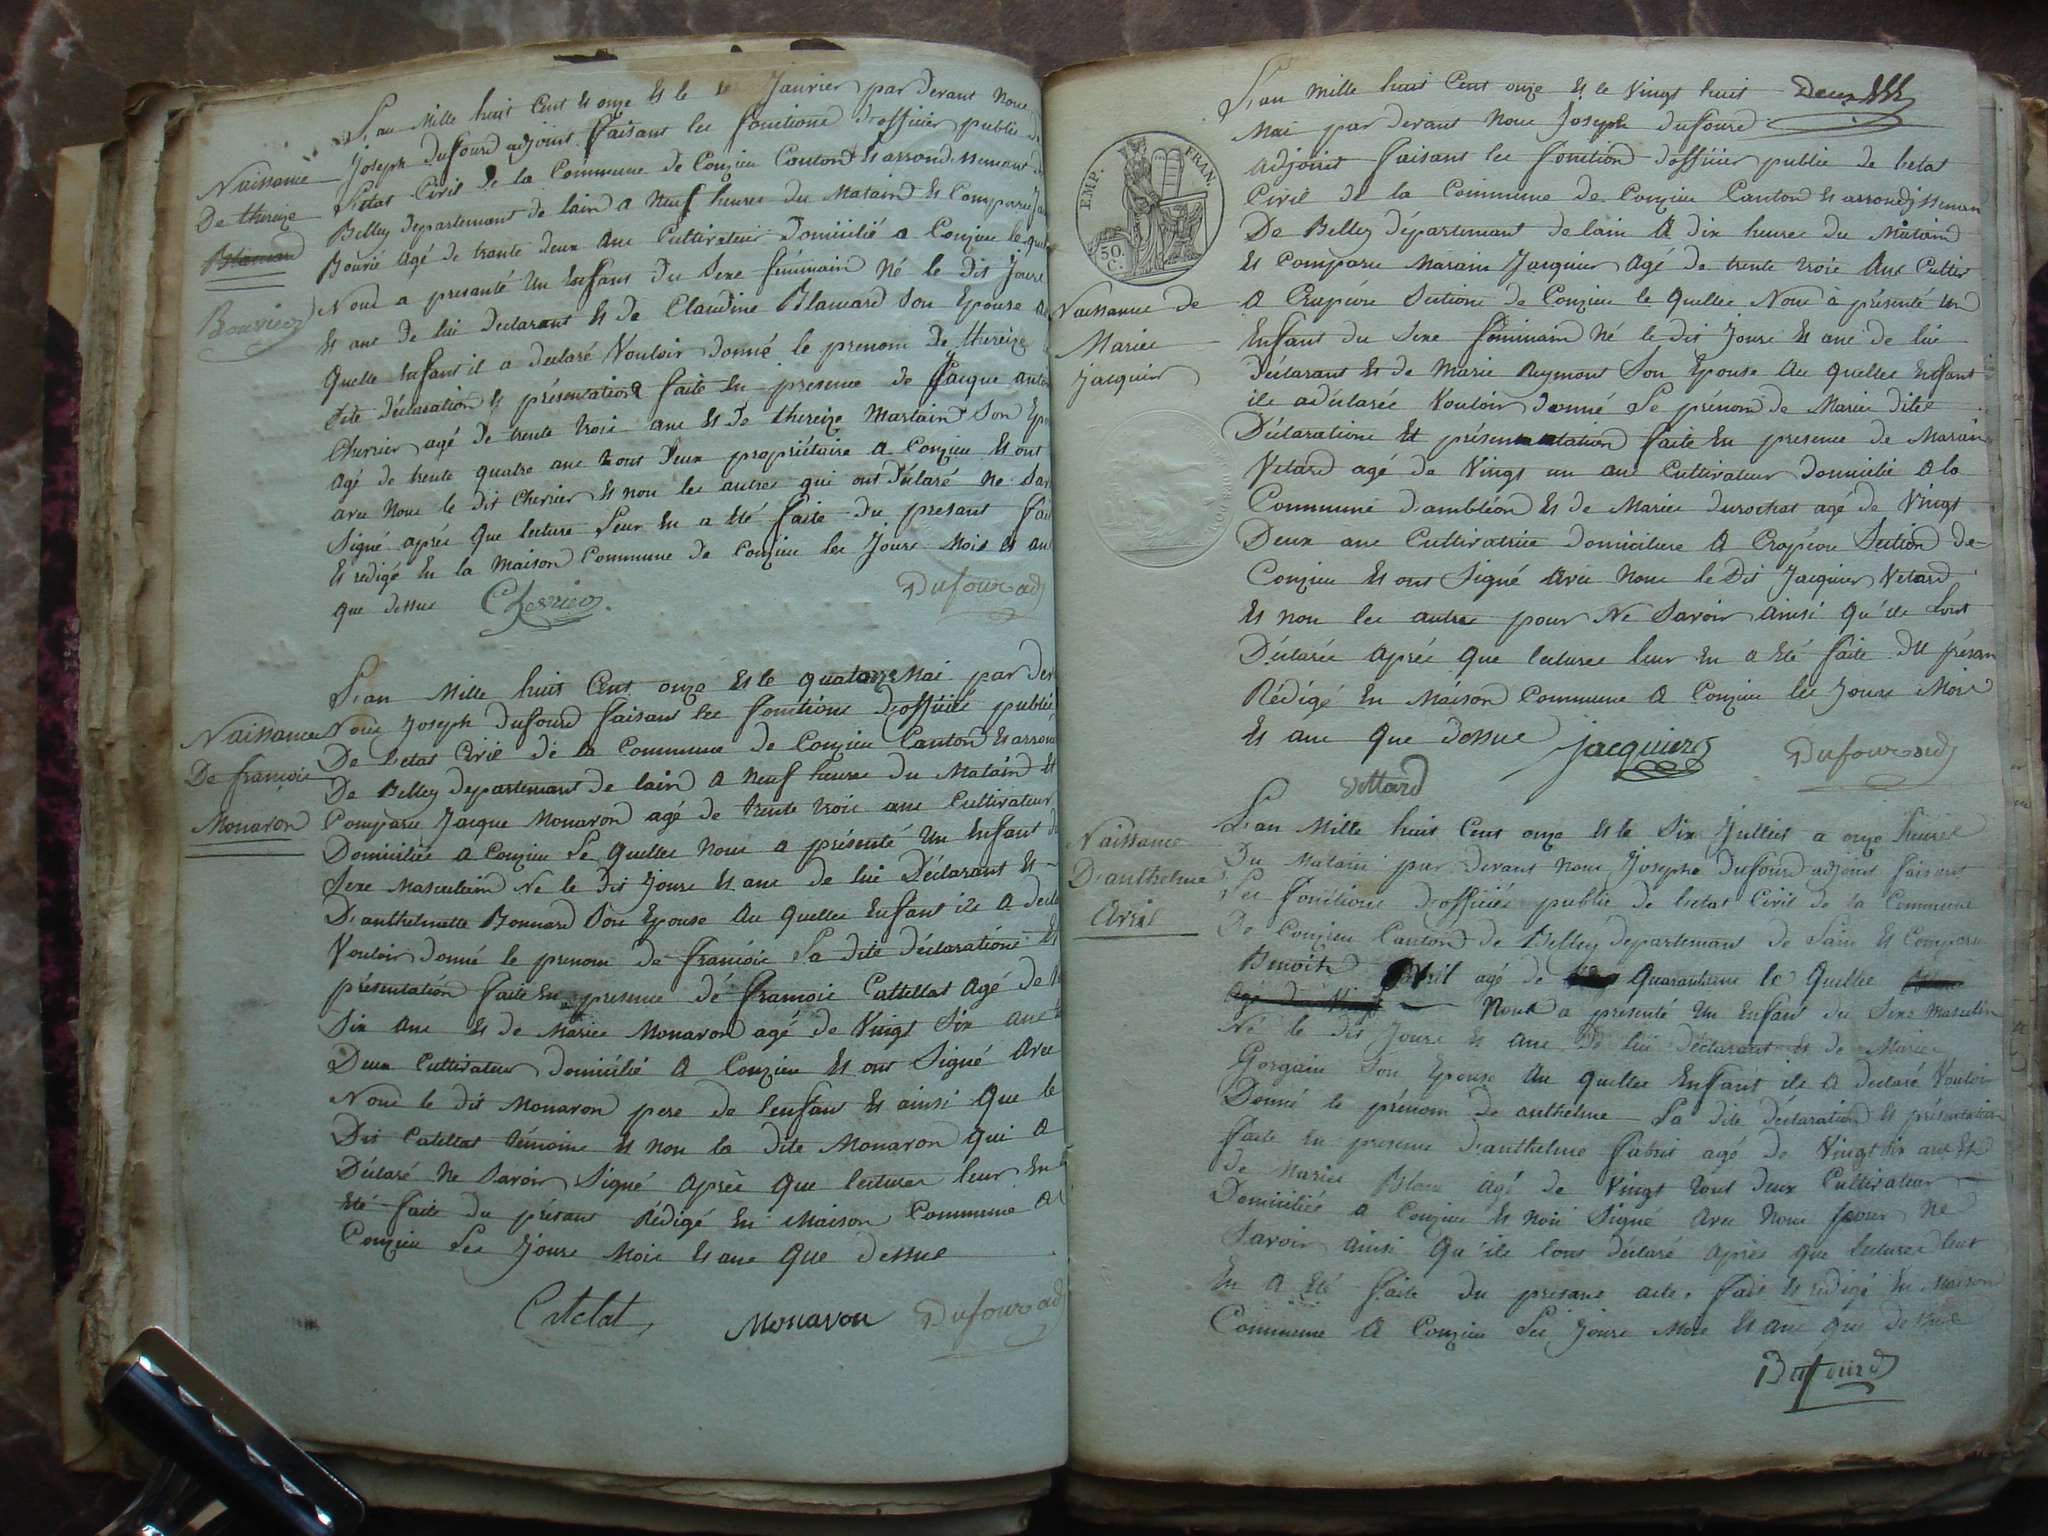 L'an Mille huit Cent et onze et le Janvier par devant nous
Naissance
De thereize
Blancard
Bouvier
Joseph Duffourd adjoint faisant les fonctions d'officier public de
L'etat Civil de la Commune de Conzieu Canton et arrondissement de
Belley departemant de lain a Neuf heures du Matain Et Comparu
Bouvié agé de trante deux ans Cultivateur Domicilié a Conzieu le quel
Nous a presanté un Enfant du Sexe féminain Né le dit Jours
Et ans de lui declarant Et de Claudine Blancard Son Epouse au
quelle Enfant il a declaré Vouloir donné le prenom De thereize
dite déclaration Et présentation faite En presence de Jacque
Cherrier agé de trente trois ans Et De thereize Martain Son
Agé de trente quatre ans tous Deux propriétaire a Conzieu Et ont
avec Nous le dit Cherrier Et non les autres qui ont Déclaré ne
Signé aprés que lecture Leur En a Eté faite du presant
Et redigé En la Maison Commune de Conzieu les Jours Mois Et an
que dessus Cherrier Dufour adj
L'an Mille huit Cent onze Et le quatorze Mai par
Naissance
De françois
Monavon
Nous Joseph Dufourd faisant les fonctions d'officiés publié
De Letat Civil de la Commune de Conzieu Canton Et
De Belley departemant de lain a neuf heures du Matain Et
Comparu Jacque Monavon agé de trente trois ans Cultivateur
Domiciliée a Conzieu Le quelles Nous a présenté Un Enfant du
Sexe Masculain Né le Dit Jours Et ans de lui Déclarant Et
D'anthelmette Bonnard Son Epouse Au quelles Enfant ils A
Vouloir donné le prenom de françois La dite déclarations Et
présentation faite En presence de françois Cattellat Agé de
Six ans Et de Maries Monavon agé de Vingt Six ans
Deux Cultivateur domicilié A Conzieu Et ont Signé Avec
Nous le dit Monavon pere de l'enfant Et ainsi Que le
Dit Catellat témoins Et non la dite Monavon qui A
Déclaré Ne Savoir Signé Aprés Que lectures leur En
Eté faite du présant Rédigé En Maison Commune A
Conzieu Les Jours Mois Et ans Que dessus
Catelat Monavon Dufour adj
L'an Mille huit Cent onze Et le Vingt huit
Mai par Devant Nous Joseph Dufourd
EMP. FRAN.
50 C.
Naissance de
Maries
Jacquier
adjoint faisant les fonction d'officier public de l'etat
Civil de la Commune de Conzieu Canton Et arrondissemen
De Belley départemant de lain A dix heures du Matain
Et Comparu Marain Jacquier Agé de trente trois Ans
A Crapéou Sections de Conzieu le quelles Nous à présenté un
Enfant du Sexe féminain Né le dit Jours Et ans de lui
Déclarant Et de Marie Aymont Son Epouse Au quelles Enfant
ils adéclarée Vouloir donné Le prénom de Maries dite
Déclarations Et présentation faite En presence de Marain
Vetard agé de Vingt un ans Cultivateur domicilié A la
Commune d'ambléon Et de Maries Durochat agé de Vingt
Deux ans Cultivatrice domiciliere A Crapéou Section de
Conzieu Et ont Signé Avec Nous le Dit Jacquier Vetard
Et non les autres pour Ne Savoir Ainsi Qu'ils Lont
Déclarée Aprés Que lectures leur En a Eté faite du présan
Rédigé En Maison Commune A Conzieu les Jours Mois
Et ans Que dessus Jacquier Dufour adj
Vettard
Naissance
D'anthelme
Avril
L'an Mille huit Cent onze Et le Six Julliet a onze heures
Du Matain par devant Nous Josephe Dufourd adjoint faisant
Les fonctions d'officiés public de Letat Civil de la Commune
De Conzieu Canton de Belley departemant de Lain Et Comparu
Benoit Avril agé de Quarantune le Quelles
Nous a presenté Un Enfant du Sexe Masculin
Né le dit Jours Et Ans de lui déclarant Et de Maries
Gorgain Son Epouse Au quelles Enfant ils A declaré Vouloir
Donné le prénom de anthelme La dite Déclaration Et présentation
faite En presence D'anthelme fabrit agé de Vingt six ans Et
de Maries Blanc agé de Vingt tous deux Cultivateur
Domiciliés a Conzieu Et Signé Avec Nous pour Ne
Savoir Ainsi Qu'ils lont Déclaré Aprés Que lectures leur
En A Eté faite du présant acte. fait Et redigé En Maison
Commune A Conzieu Les Jours Mois Et ans que dessus
Dufourd